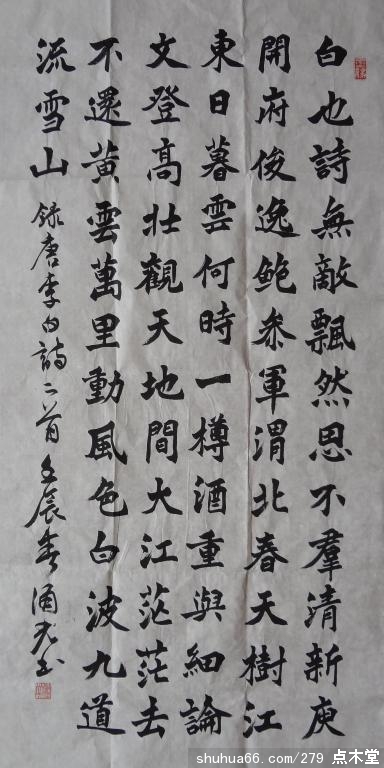 白也詩無敵飄然思不羣清新庾
開府俊逸鲍叅軍渭北春天樹江
東日暮雲何時一樽酒重與細論
文登高壮觀天地間大江茫茫去
不還黄雲萬里動風色白波九道
流雪山 録唐李白詩二首壬辰春书
shuhua66.com/279 点木堂